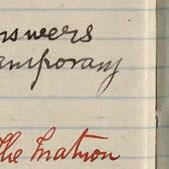 nswers
emporary
The Matron